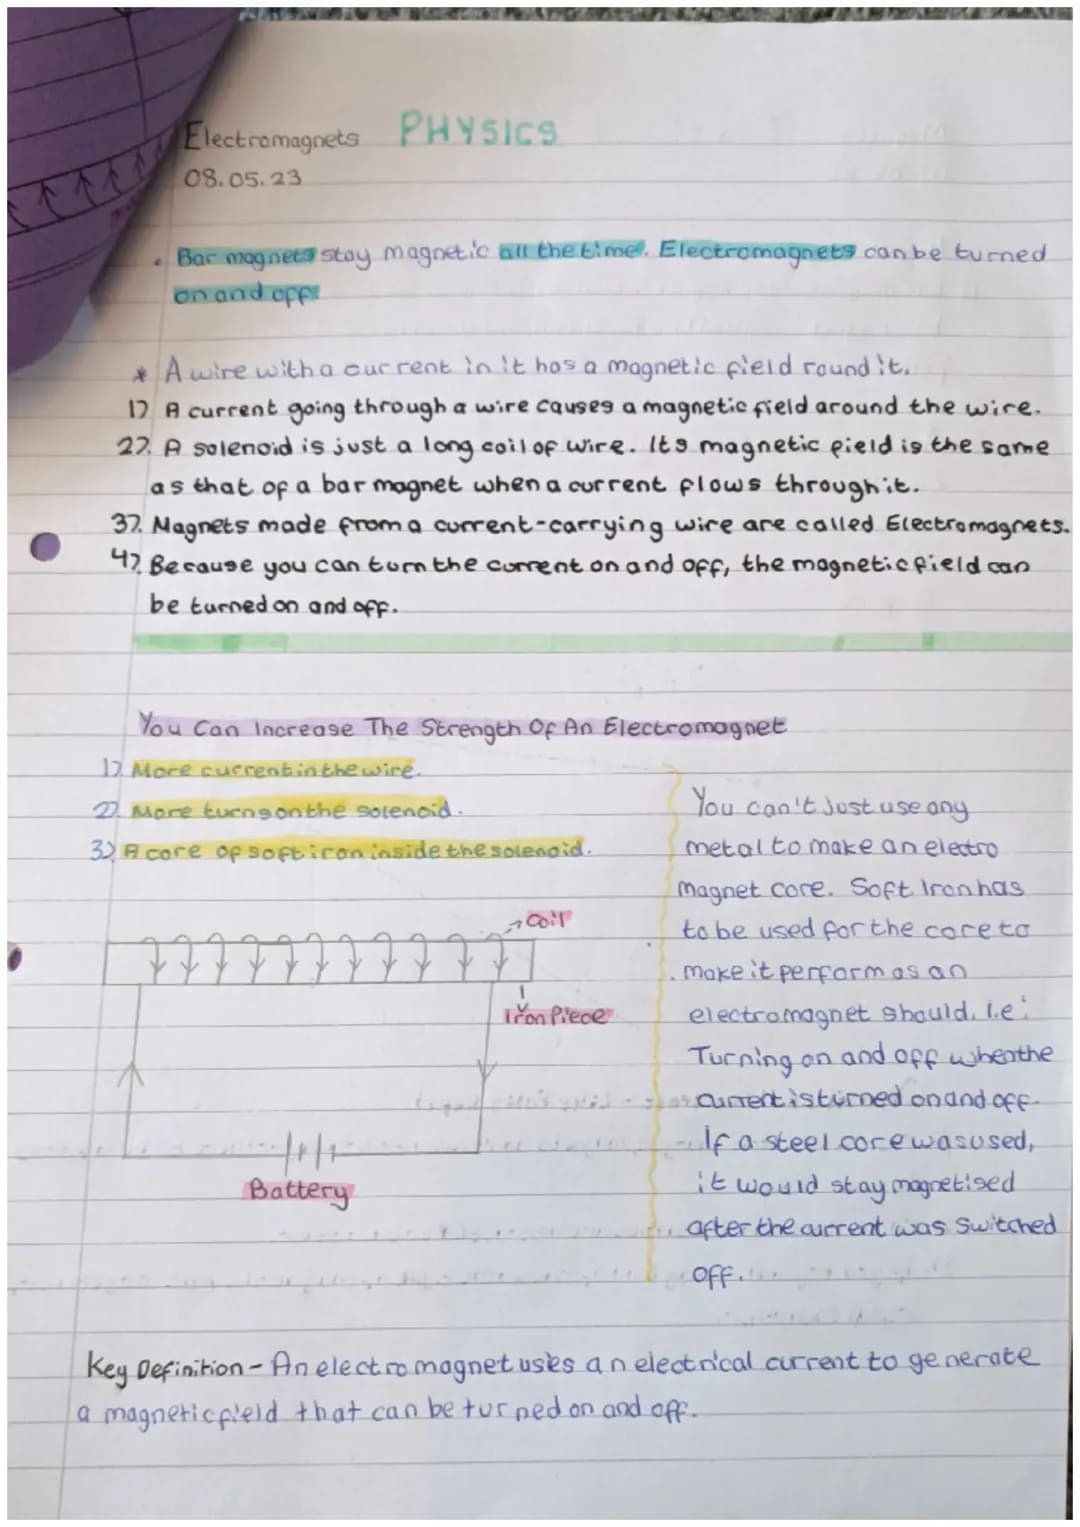 Electromagnets PHYSICS
08.05.23
• Bar magnets stay magnetic all the time. Electromagnets can be turned
on and off.
* A wire with a current in it has a magnetic field round it.
1) A current going through a wire causes a magnetic field around the wire.
2) A solenoid is just a long coil of wire. Its magnetic field is the same
as that of a bar magnet when a current flows through it.
3) Magnets made from a current-carrying wire are called Electromagnets.
4) Because you can turn the current on and off, the magnetic field can
be turned on and off.
You Can Increase The Strength Of An Electromagnet
1) More current in the wire.
2) More turns on the solenoid.
3) A core of soft iron inside the solenoid.
Coil
Iron Piece
Battery
You can't just use any
metal to make an electro
magnet core. Soft Iron has
to be used for the core to
make it perform as an
electromagnet should, i.e:
Turning on and off when the
current is turned on and off.
If a steel core was used,
it would stay magnetised
after the current was switched
off.
Key Definition - An electromagnet uses an electrical current to generate
a magnetic field that can be turned on and off.